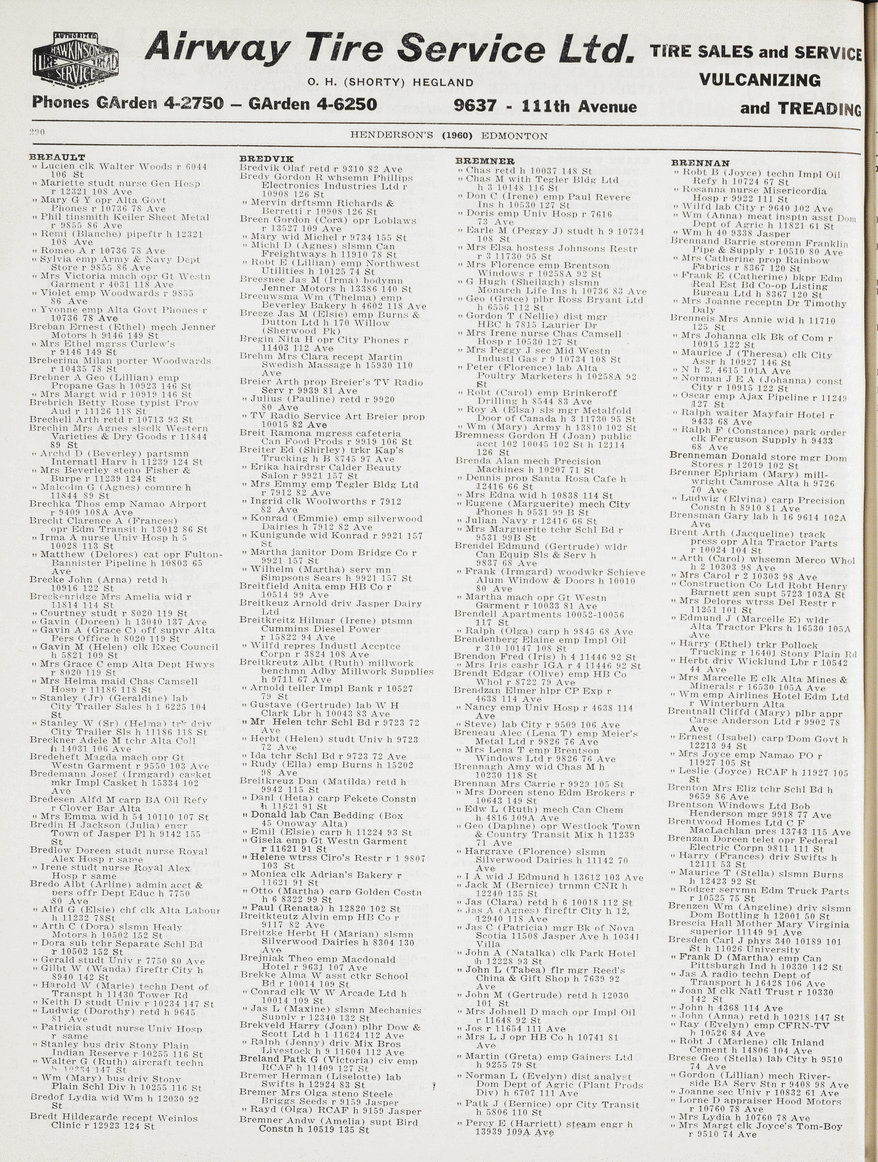 AUTHORIZED
HAWKINSON
TIRE TREAD
SERVICE
Airway Tire Service Ltd.
TIRE SALES and SERVICE
O. H. (SHORTY) HEGLAND
VULCANIZING
Phones GArden 4-2750 — GArden 4-6250
9637 - 111th Avenue
and TREADING
290
HENDERSON'S (1960) EDMONTON
BREAULT
" Lucien clk Walter Woods r 6044
106 St
" Mariette studt nurse Gen Hosp
r 12321 108 Ave
" Mary G Y opr Alta Govt
Phones r 10736 78 Ave
" Phil tinsmith Keiler Sheet Metal
r 9855 86 Ave
" Remi (Blanche) pipeftr h 12321
108 Ave
" Romeo A r 10736 78 Ave
" Sylvia emp Army & Navy Dept
Store r 9855 86 Ave
" Mrs Victoria mach opr Gt Westn
Garment r 4031 118 Ave
" Violet emp Woodwards r 9855
86 Ave
" Yvonne emp Alta Govt Phones r
10736 78 Ave
Breban Ernest (Ethel) mech Jenner
Motors h 9146 149 St
" Mrs Ethel mgrss Curlew's
r 9146 149 St
Breberina Milan porter Woodwards
r 10435 78 St
Brebner A Geo (Lillian) emp
Propane Gas h 10923 146 St
" Mrs Margt wid r 10919 146 St
Brebrich Betty Rose typist Prov
Aud r 11126 118 St
Brechell Arth retd r 10713 93 St
Brechin Mrs Agnes slsclk Western
Varieties & Dry Goods r 11844
89 St
" Archd D (Beverley) partsmn
Internatl Harv h 11239 124 St
" Mrs Beverley steno Fisher &
Burpe r 11239 124 St
" Malcolm G (Agnes) comnre h
11844 89 St
Brechka Thos emp Namao Airport
r 9409 108A Ave
Brecht Clarence A (Frances)
opr Edm Transit h 13012 86 St
" Irma A nurse Univ Hosp h 5
10028 113 St
" Matthew (Delores) cat opr Fulton-
Bannister Pipeline h 10803 65
Ave
Brecke John (Arna) retd h
10916 122 St
Breckenridge Mrs Amelia wid r
11814 114 St
" Courtney studt r 8020 119 St
" Gavin (Doreen) h 13040 137 Ave
" Gavin A (Grace C) off supvr Alta
Pers Office h 8020 119 St
" Gavin M (Helen) clk Exec Council
h 5821 109 St
" Mrs Grace C emp Alta Dept Hwys
r 8020 119 St
" Mrs Helma maid Chas Camsell
Hosp r 11186 118 St
" Stanley (Jr) (Geraldine) lab
City Trailer Sales h 1 6225 104
St
" Stanley W (Sr) (Helma) trk driv
City Trailer Sls h 11186 118 St
Breckner Adele M tchr Alta Coll
h 14031 106 Ave
Bredeheft Magda mach opr Gt
Westn Garment r 9550 103 Ave
Bredemann Josef (Irmgard) casket
mkr Impl Casket h 15334 102
Ave
Bredesen Alfd M carp BA Oil Refy
r Clover Bar Alta
" Mrs Emma wid h 54 10110 107 St
Bredin H Jackson (Julia) engr
Town of Jasper Pl h 9142 155
St
Bredlow Doreen studt nurse Royal
Alex Hosp r same
" Irene studt nurse Royal Alex
Hosp r same
Bredo Albt (Arline) admin acct &
pers offr Dept Educ h 7750
80 Ave
" Alfd G (Elsie) chf clk Alta Labour
h 11232 78St
" Arth C (Dora) slsmn Healy
Motors h 10502 152 St
" Dora sub tchr Separate Schl Bd
r 10502 152 St
" Gerald studt Univ r 7750 80 Ave
" Gilbt W (Wanda) fireftr City h
8940 142 St
" Harold W (Marie) techn Dept of
Transpt h 11430 Tower Rd
" Keith D studt Univ r 10234 147 St
" Ludwig (Dorothy) retd h 9645
81 Ave
" Patricia studt nurse Univ Hosp
r same
" Stanley bus driv Stony Plain
Indian Reserve r 10255 116 St
" Walter G (Ruth) aircraft techn
h 10234 147 St
" Wm (Mary) bus driv Stony
Plain Schl Div h 10255 116 St
Bredof Lydia wid Wm h 12030 92
St
Bredt Hildegarde recept Weinlos
Clinic r 12923 124 St
BREDVIK
Bredvik Olaf retd r 9310 82 Ave
Bredy Gordon R whsemn Phillips
Electronics Industries Ltd r
10908 126 St
" Mervin drftsmn Richards &
Berretti r 10908 126 St
Breen Gordon (Cora) opr Loblaws
r 13527 109 Ave
" Mary wid Michel r 9734 155 St
" Michl D (Agnes) slsmn Can
Freightways h 11910 78 St
" Robt E (Lillian) emp Northwest
Utilities h 10125 74 St
Breesnee Jas M (Irma) bodymn
Jenner Motors h 13386 140 St
Breeuwsma Wm (Thelma) emp
Beverley Bakery h 4602 118 Ave
Breeze Jas M (Elsie) emp Burns &
Dutton Ltd h 170 Willow
(Sherwood Pk)
Bregin Nita H opr City Phones r
11403 112 Ave
Brehm Mrs Clara recept Martin
Swedish Massage h 15930 110
Ave
Breier Arth prop Breier's TV Radio
Serv r 9939 81 Ave
" Julius (Pauline) retd r 9920
80 Ave
" TV Radio Service Art Breier prop
10015 82 Ave
Breit Ramona mgress cafeteria
Can Food Prods r 9919 106 St
Breiter Ed (Shirley) trkr Kap's
Trucking h B 8745 97 Ave
" Erika hairdrsr Calder Beauty
Salon r 9921 157 St
" Mrs Emmy emp Tegler Bldg Ltd
r 7912 82 Ave
" Ingrid clk Woolworths r 7912
82 Ave
" Konrad (Emmie) emp silverwood
Dairies h 7912 82 Ave
" Kunigunde wid Konrad r 9921 157
St
" Martha janitor Dom Bridge Co r
9921 157 St
" Wilhelm (Martha) serv mn
Simpsons Sears h 9921 157 St
Breitfield Anita emp HB Co r
10514 99 Ave
Breitkeuz Arnold driv Jasper Dairy
Ltd
Breitkreitz Hilmar (Irene) ptsmn
Cummins Diesel Power
r 15822 94 Ave
" Wilfd repres Industl Accptce
Corpn r 3824 108 Ave
Breitkreutz Albt (Ruth) millwork
benchmn Adby Millwork Supplies
h 9711 67 Ave
" Arnold teller Impl Bank r 10527
79 St
" Gustave (Gertrude) lab W H
Clark Lbr h 10043 83 Ave
" Mr Helen tchr Schl Bd r 9723 72
Ave
" Herbt (Helen) studt Univ h 9723
72 Ave
" Ida tchr Schl Bd r 9723 72 Ave
" Rudy (Ella) emp Burns h 15202
98 Ave
Breitkreuz Dan (Matilda) retd h
9942 115 St
" Danl (Heta) carp Fekete Constn
h 11621 91 St
" Donald lab Can Bedding (Box
45 Onoway Alta)
" Emil (Elsie) carp h 11224 93 St
" Gisela emp Gt Westn Garment
r 11621 91 St
" Helene wtrss Ciro's Restr r 1 9807
103 St
" Monica clk Adrian's Bakery r
11621 91 St
" Otto (Martha) carp Golden Costn
h 6 8322 99 St
" Paul (Renata) h 12820 102 St
Breitkteutz Alvin emp HB Co r
9117 82 Ave
Breitzke Herbt H (Marian) slsmn
Silverwood Dairies h 8304 130
Ave
Brejniak Theo emp Macdonald
Hotel r 9631 107 Ave
Brekke Alma W asst ctkr School
Bd r 10014 109 St
" Conrad clk W W Arcade Ltd h
10014 109 St
" Jas L (Maxine) slsmn Mechanics
Supply r 12340 132 St
Brekveld Harry (Joan) plbr Dow &
Scott Ltd h 1 11624 112 Ave
" Ralph (Jenny) driv Mix Bros
Livestock h 9 11604 112 Ave
Breland Patk G (Victoria) civ emp
RCAF h 11409 127 St
Bremer Herman (Liselotte) lab
Swifts h 12924 83 St
Bremer Mrs Olga steno Steele
Briggs Seeds r 9159 Jasper
" Rayd (Olga) RCAF h 9159 Jasper
Bremner Andw (Amelia) supt Bird
Constn h 10519 135 St
BREMNER
" Chas retd h 10037 148 St
" Chas M with Tegler Bldg Ltd
h 3 10148 116 St
" Don C (Irene) emp Paul Revere
Ins h 10530 127 St
" Doris emp Univ Hosp r 7616
73 Ave
" Earle M (Peggy J) studt h 9 10734
108 St
" Mrs Elsa hostess Johnsons Restr
r 3 11730 95 St
" Mrs Florence emp Brentson
Windows r 10258A 92 St
" G Hugh (Sheilagh) slsmn
Monarch Life Ins h 10736 83 Ave
" Geo (Grace) plbr Ross Bryant Ltd
h 6556 112 St
" Gordon T (Nellie) dist mgr
HBC h 7815 Laurier Dr
" Mrs Irene nurse Chas Camsell
Hosp r 10530 127 St
" Mrs Peggy J sec Mid Westn
Industl Gas r 9 10734 108 St
" Peter (Florence) lab Alta
Poultry Marketers h 10258A 92
St
" Robt (Carol) emp Brinkeroff
Drilling h 8544 83 Ave
" Roy A (Elsa) sls mgr Metalfold
Door of Canada h 3 11730 95 St
" Wm (Mary) Army h 13810 102 St
Bremness Gordon H (Joan) public
acct 102 10045 102 St h 12114
126 St
Brenda Alan mech Precision
Machines h 10207 71 St
" Dennis prop Santa Rosa Cafe h
12416 66 St
" Mrs Edna wid h 10838 114 St
" Eugene (Marguerite) mech City
Phones h 9531 99 B St
" Julian Navy r 12416 66 St
" Mrs Marguerite tchr Schl Bd r
9531 99B St
Brendel Edmund (Gertrude) wldr
Can Equip Sls & Serv h
9837 68 Ave
" Frank (Irmgard) woodwkr Schieve
Alum Window & Doors h 10010
80 Ave
" Martha mach opr Gt Westn
Garment r 10033 81 Ave
Brendell Apartments 10052-10056
117 St
" Ralph (Olga) carp h 9845 68 Ave
Brendenberg Elaine emp Impl Oil
r 310 10147 108 St
Brendon Fred (Iris) h 4 11446 92 St
" Mrs Iris cashr IGA r 4 11446 92 St
Brendt Edgar (Olive) emp HB Co
Whol r 8722 79 Ave
Brendzan Elmer hlpr CP Exp r
4638 114 Ave
" Nancy emp Univ Hosp r 4638 114
Ave
" (Steve) lab City r 9509 106 Ave
Breneau Alec (Lena T) emp Meier's
Metal Ltd r 9826 76 Ave
" Mrs Lena T emp Brentson
Windows Ltd r 9826 76 Ave
Brennagh Amy wid Chas M h
10230 118 St
Brennan Mrs Carrie r 9929 105 St
" Mrs Doreen steno Edm Brokers r
10643 149 St
" Edw L (Ruth) mech Can Chem
h 4816 109A Ave
" Geo (Daphne) opr Westlock Town
& Country Transit Mix h 11239
71 Ave
" Hargrave (Florence) slsmn
Silverwood Dairies h 11142 70
Ave
" I A wid J Edmund h 13612 103 Ave
" Jack M (Bernice) trnmn CNR h
12240 135 St
" Jas (Clara) retd h 6 10018 112 St
" Jas A (Agnes) fireftr City h 12,
12940 118 Ave
" Jas C (Patricia) mgr Bk of Nova
Scotia 11508 Jasper Ave h 10341
Villa
" John A (Natalka) clk Park Hotel
h 12228 93 St
" John L (Tabea) flr mgr Reed's
China & Gift Shop h 7639 92
Ave
" John M (Gertrude) retd h 12030
101 St
" Mrs Johnell D mach opr Impl Oil
r 11648 92 St
" Jos r 11654 111 Ave
" Mrs L J opr HB Co h 10741 81
Ave
" Martin (Greta) emp Gainers Ltd
h 9255 79 St
" Norman L (Evelyn) dist analyst
Dom Dept of Agric (Plant Prods
Div) h 6707 111 Ave
" Patk J (Bernice) opr City Transit
h 5806 110 St
" Percy E (Harriett) steam engr h
13939 109A Ave
BRENNAN
" Robt B (Joyce) techn Impl Oil
Refy h 10724 67 St
" Rosanna nurse Misericordia
Hosp r 9922 111 St
" Wilfd lab City r 9640 102 Ave
" Wm (Anna) meat insptn asst Dom
Dept of Agric h 11821 61 St
" Wm h 40 9338 Jasper
Brennand Barrie storemn Franklin
Pipe & Supply r 10510 80 Ave
" Mrs Catherine prop Rainbow
Fabrics r 8367 120 St
" Frank E (Catherine) bkpr Edm
Real Est Bd Co-op Listing
Bureau Ltd h 8367 120 St
" Mrs Joanne receptn Dr Timothy
Daly
Brenneis Mrs Annie wid h 11710
125 St
" Mrs Johanna clk Bk of Com r
10915 122 St
" Maurice J (Theresa) clk City
Assr h 10927 146 St
" N h 2, 4615 101A Ave
" Norman J E A (Johanna) const
City r 10915 122 St
" Oscar emp Ajax Pipeline r 11249
127 St
" Ralph waiter Mayfair Hotel r
9433 68 Ave
" Ralph F (Constance) park order
clk Ferguson Supply h 9433
68 Ave
Brenneman Donald store mgr Dom
Stores r 12019 102 St
Brenner Ephriam (Mary) mill-
wright Camrose Alta h 9726
70 Ave
" Ludwig (Elvina) carp Precision
Constn h 8910 81 Ave
Brensman Gary lab h 16 9614 102A
Ave
Brent Arth (Jacqueline) track
press opr Alta Tractor Parts
r 10024 104 St
" Arth (Carol) whsemn Merco Whol
h 2 10303 98 Ave
" Mrs Carol r 2 10303 98 Ave
" Construction Co Ltd Robt Henry
Barnett gen supt 5723 103A St
" Mrs Delores wtrss Del Restr r
11251 101 St
" Edmund J (Marcelle E) wldr
Alta Tractor Pkrs h 16530 105A
Ave
" Harry (Ethel) trkr Pollock
Trucking r 16401 Stony Plain Rd
" Herbt driv Wicklund Lbr r 10542
44 Ave
" Mrs Marcelle E clk Alta Mines &
Minerals r 16530 105A Ave
" Wm emp Airlines Hotel Edm Ltd
r Winterburn Alta
Brentnall Cliffd (Mary) plbr appr
Carse Anderson Ltd r 9902 78
Ave
" Ernest (Isabel) carp Dom Govt h
12213 94 St
" Mrs Joyce emp Namao PO r
11927 105 St
" Leslie (Joyce) RCAF h 11927 105
St
Brenton Mrs Eliz tchr Schl Bd h
9659 86 Ave
Brentson Windows Ltd Bob
Henderson mgr 9918 77 Ave
Brentwood Homes Ltd C F
MacLachlan pres 13743 115 Ave
Brenzan Doreen telet opr Federal
Electric Corpn 9811 111 St
" Harry (Frances) driv Swifts h
12111 53 St
" Maurice T (Stella) slsmn Burns
h 12423 92 St
" Rodger servmn Edm Truck Parts
r 10525 75 St
Brenzen Wm (Angeline) driv slsmn
Dom Bottling h 12001 50 St
Brescia Hall Mother Mary Virginia
superior 11149 91 Ave
Bresden Carl J phys 340 10189 101
St h 11026 University
" Frank D (Martha) emp Can
Pittsburgh Ind h 10330 142 St
" Jas A radio techn Dept of
Transport h 16428 106 Ave
" Joan M clk Natl Trust r 10330
142 St
" John h 4368 114 Ave
" John (Anna) retd h 10218 147 St
" Ray (Evelyn) emp CFRN-TV
h 10526 84 Ave
" Robt J (Marlene) clk Inland
Cement h 14806 104 Ave
Brese Geo (Stella) lab City h 9510
74 Ave
" Gordon (Lillian) mech River-
side BA Serv Stn r 9408 98 Ave
" Joanne sec Univ r 10832 61 Ave
" Lorne D appraiser Hood Motors
r 10760 78 Ave
" Mrs Lydia h 10760 78 Ave
" Mrs Margt clk Joyce's Tom-Boy
r 9510 74 Ave